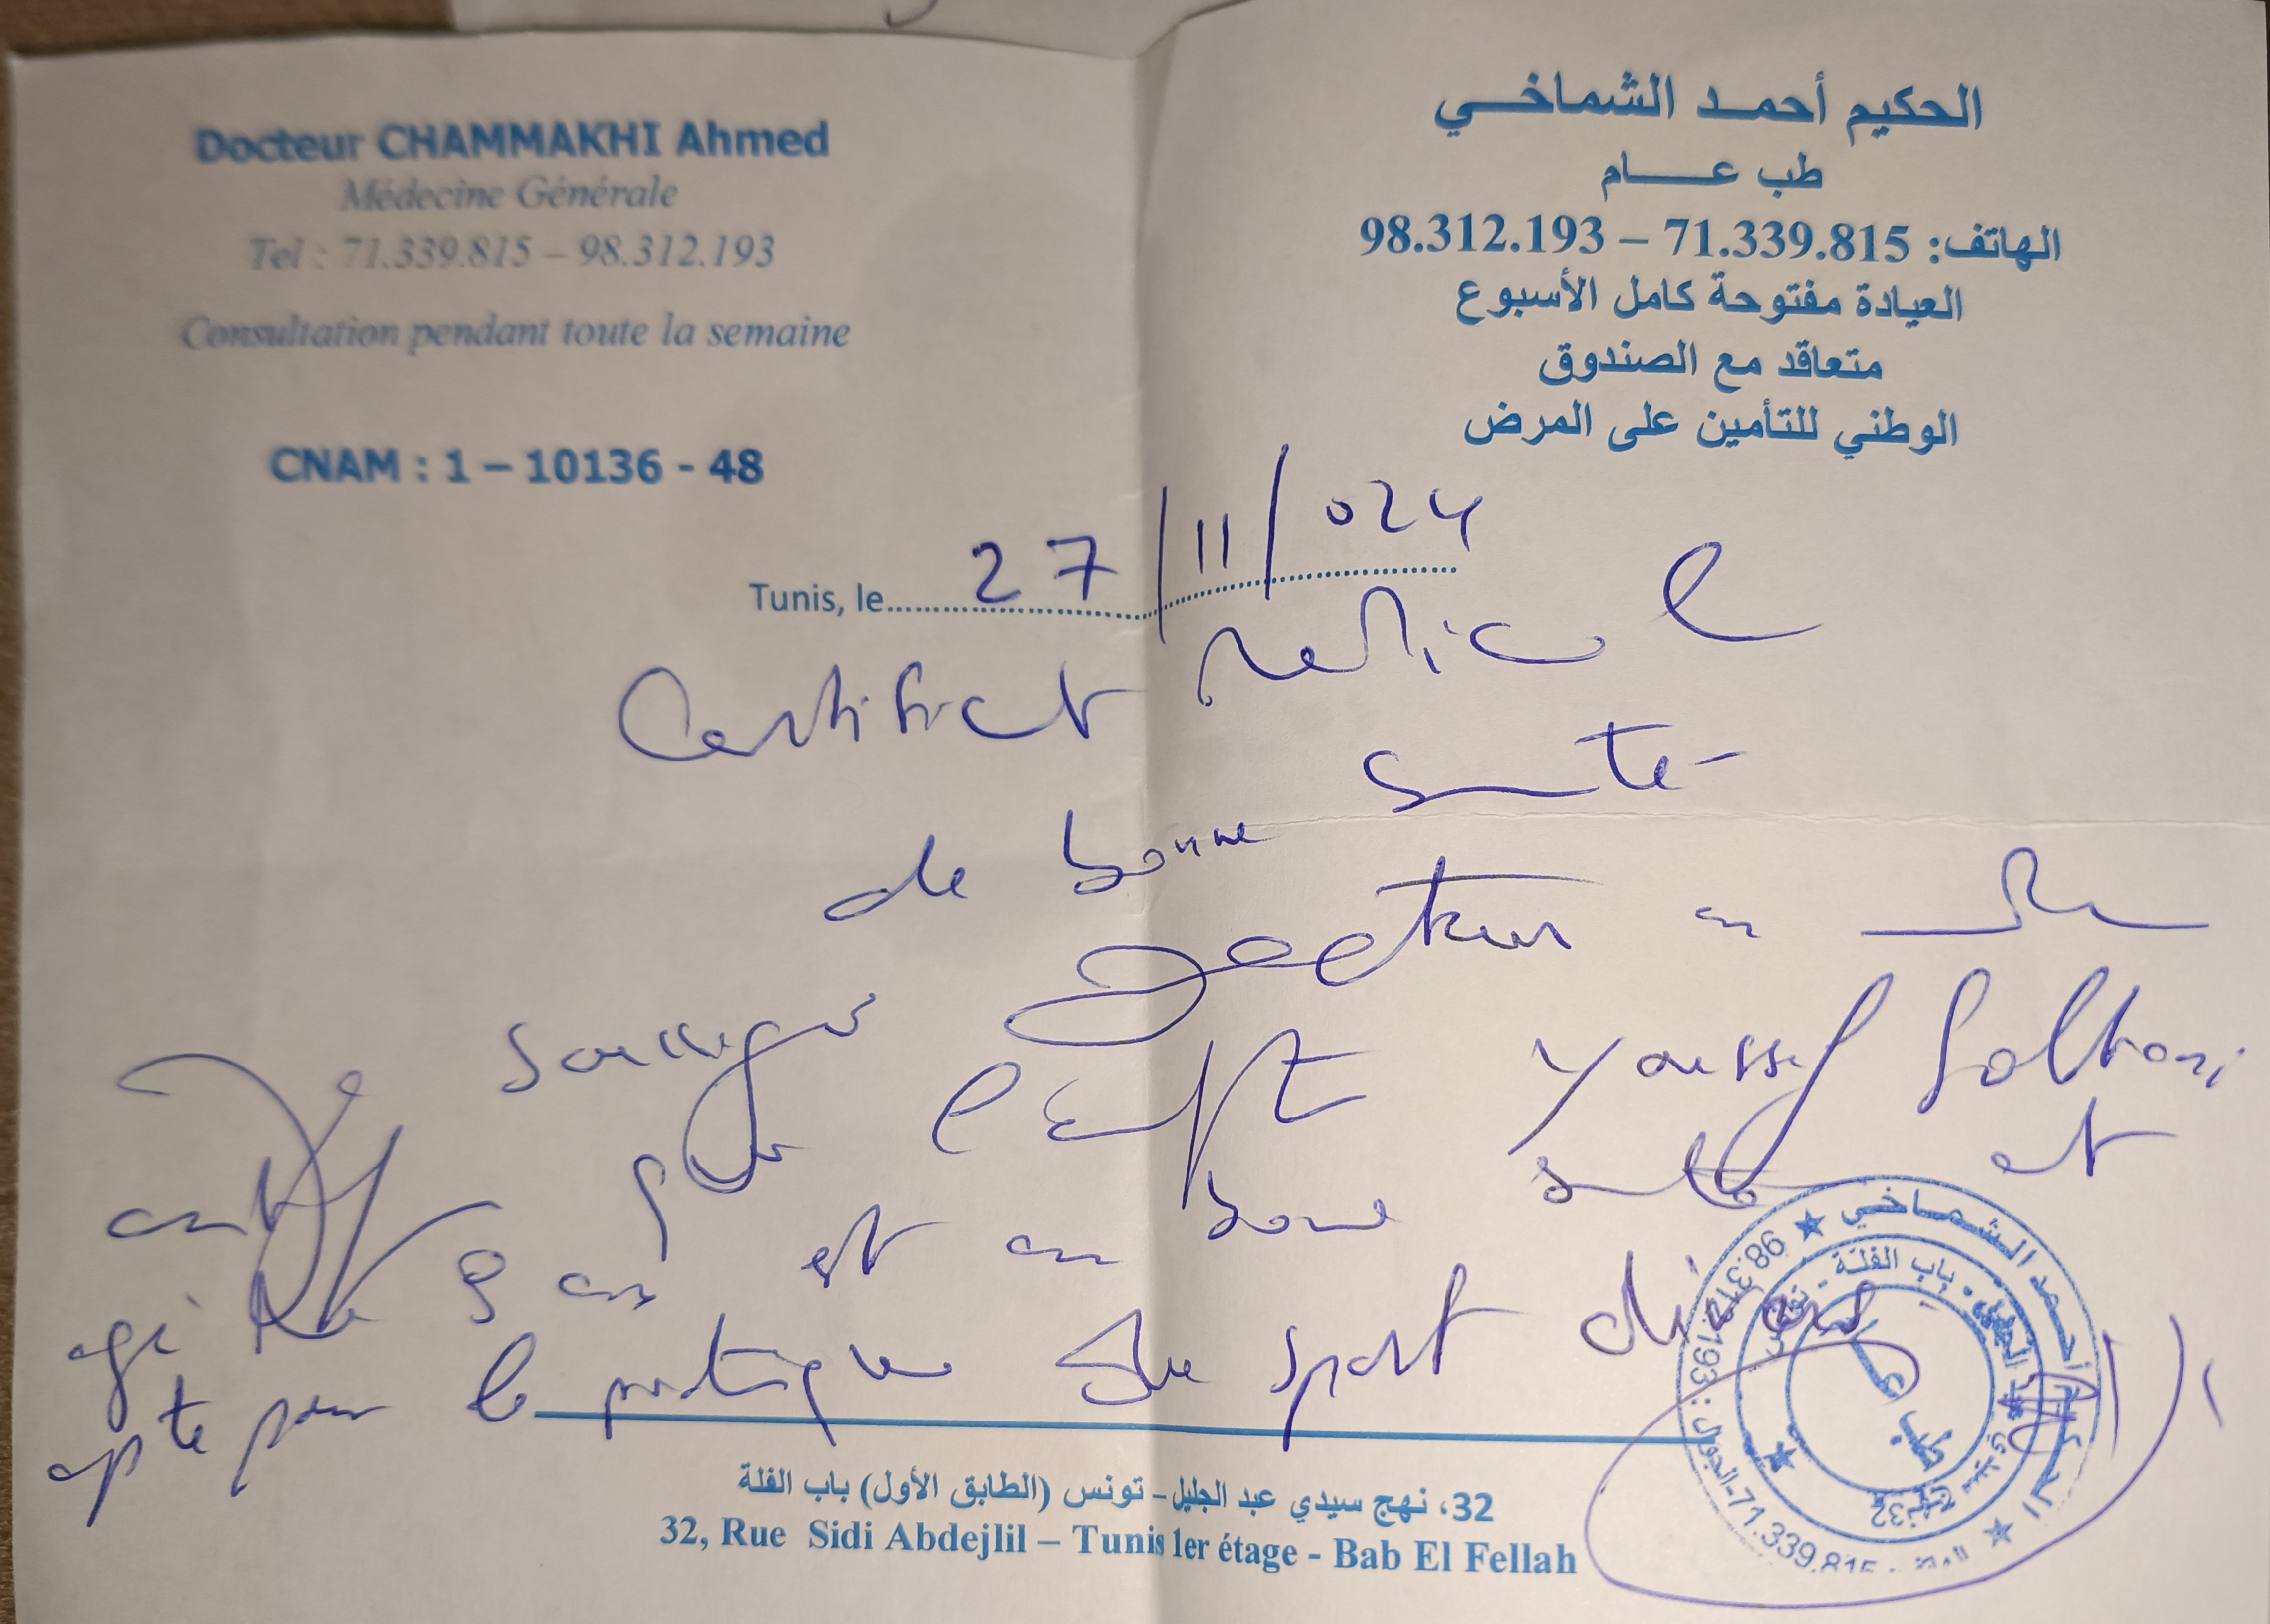 Docteur CHAMMAKHI Ahmed
Médecine Générale
Tel : 71.339.815 – 98.312.193
Consultation pendant toute la semaine
CNAM : 1 – 10136 - 48
الحكيم أحمد الشماخي
طب عام
الهاتف: 71.339.815 – 98.312.193
العيادة مفتوحة كامل الأسبوع
متعاقد مع الصندوق
الوطني للتأمين على المرض
Tunis, le 27/11/024
Certificat Medical
de bonne santé
Je soussigné Docteur en
que l'enft Youssef Soltani
agé de 9 ans est en bonne santé et
apte pour la pratique du sport
32، نهج سيدي عبد الجليل- تونس (الطابق الأول) باب الفلة
32, Rue Sidi Abdejlil – Tunis 1er étage - Bab El Fellah
أحمد الشماخي
98.312.193
71.339.815